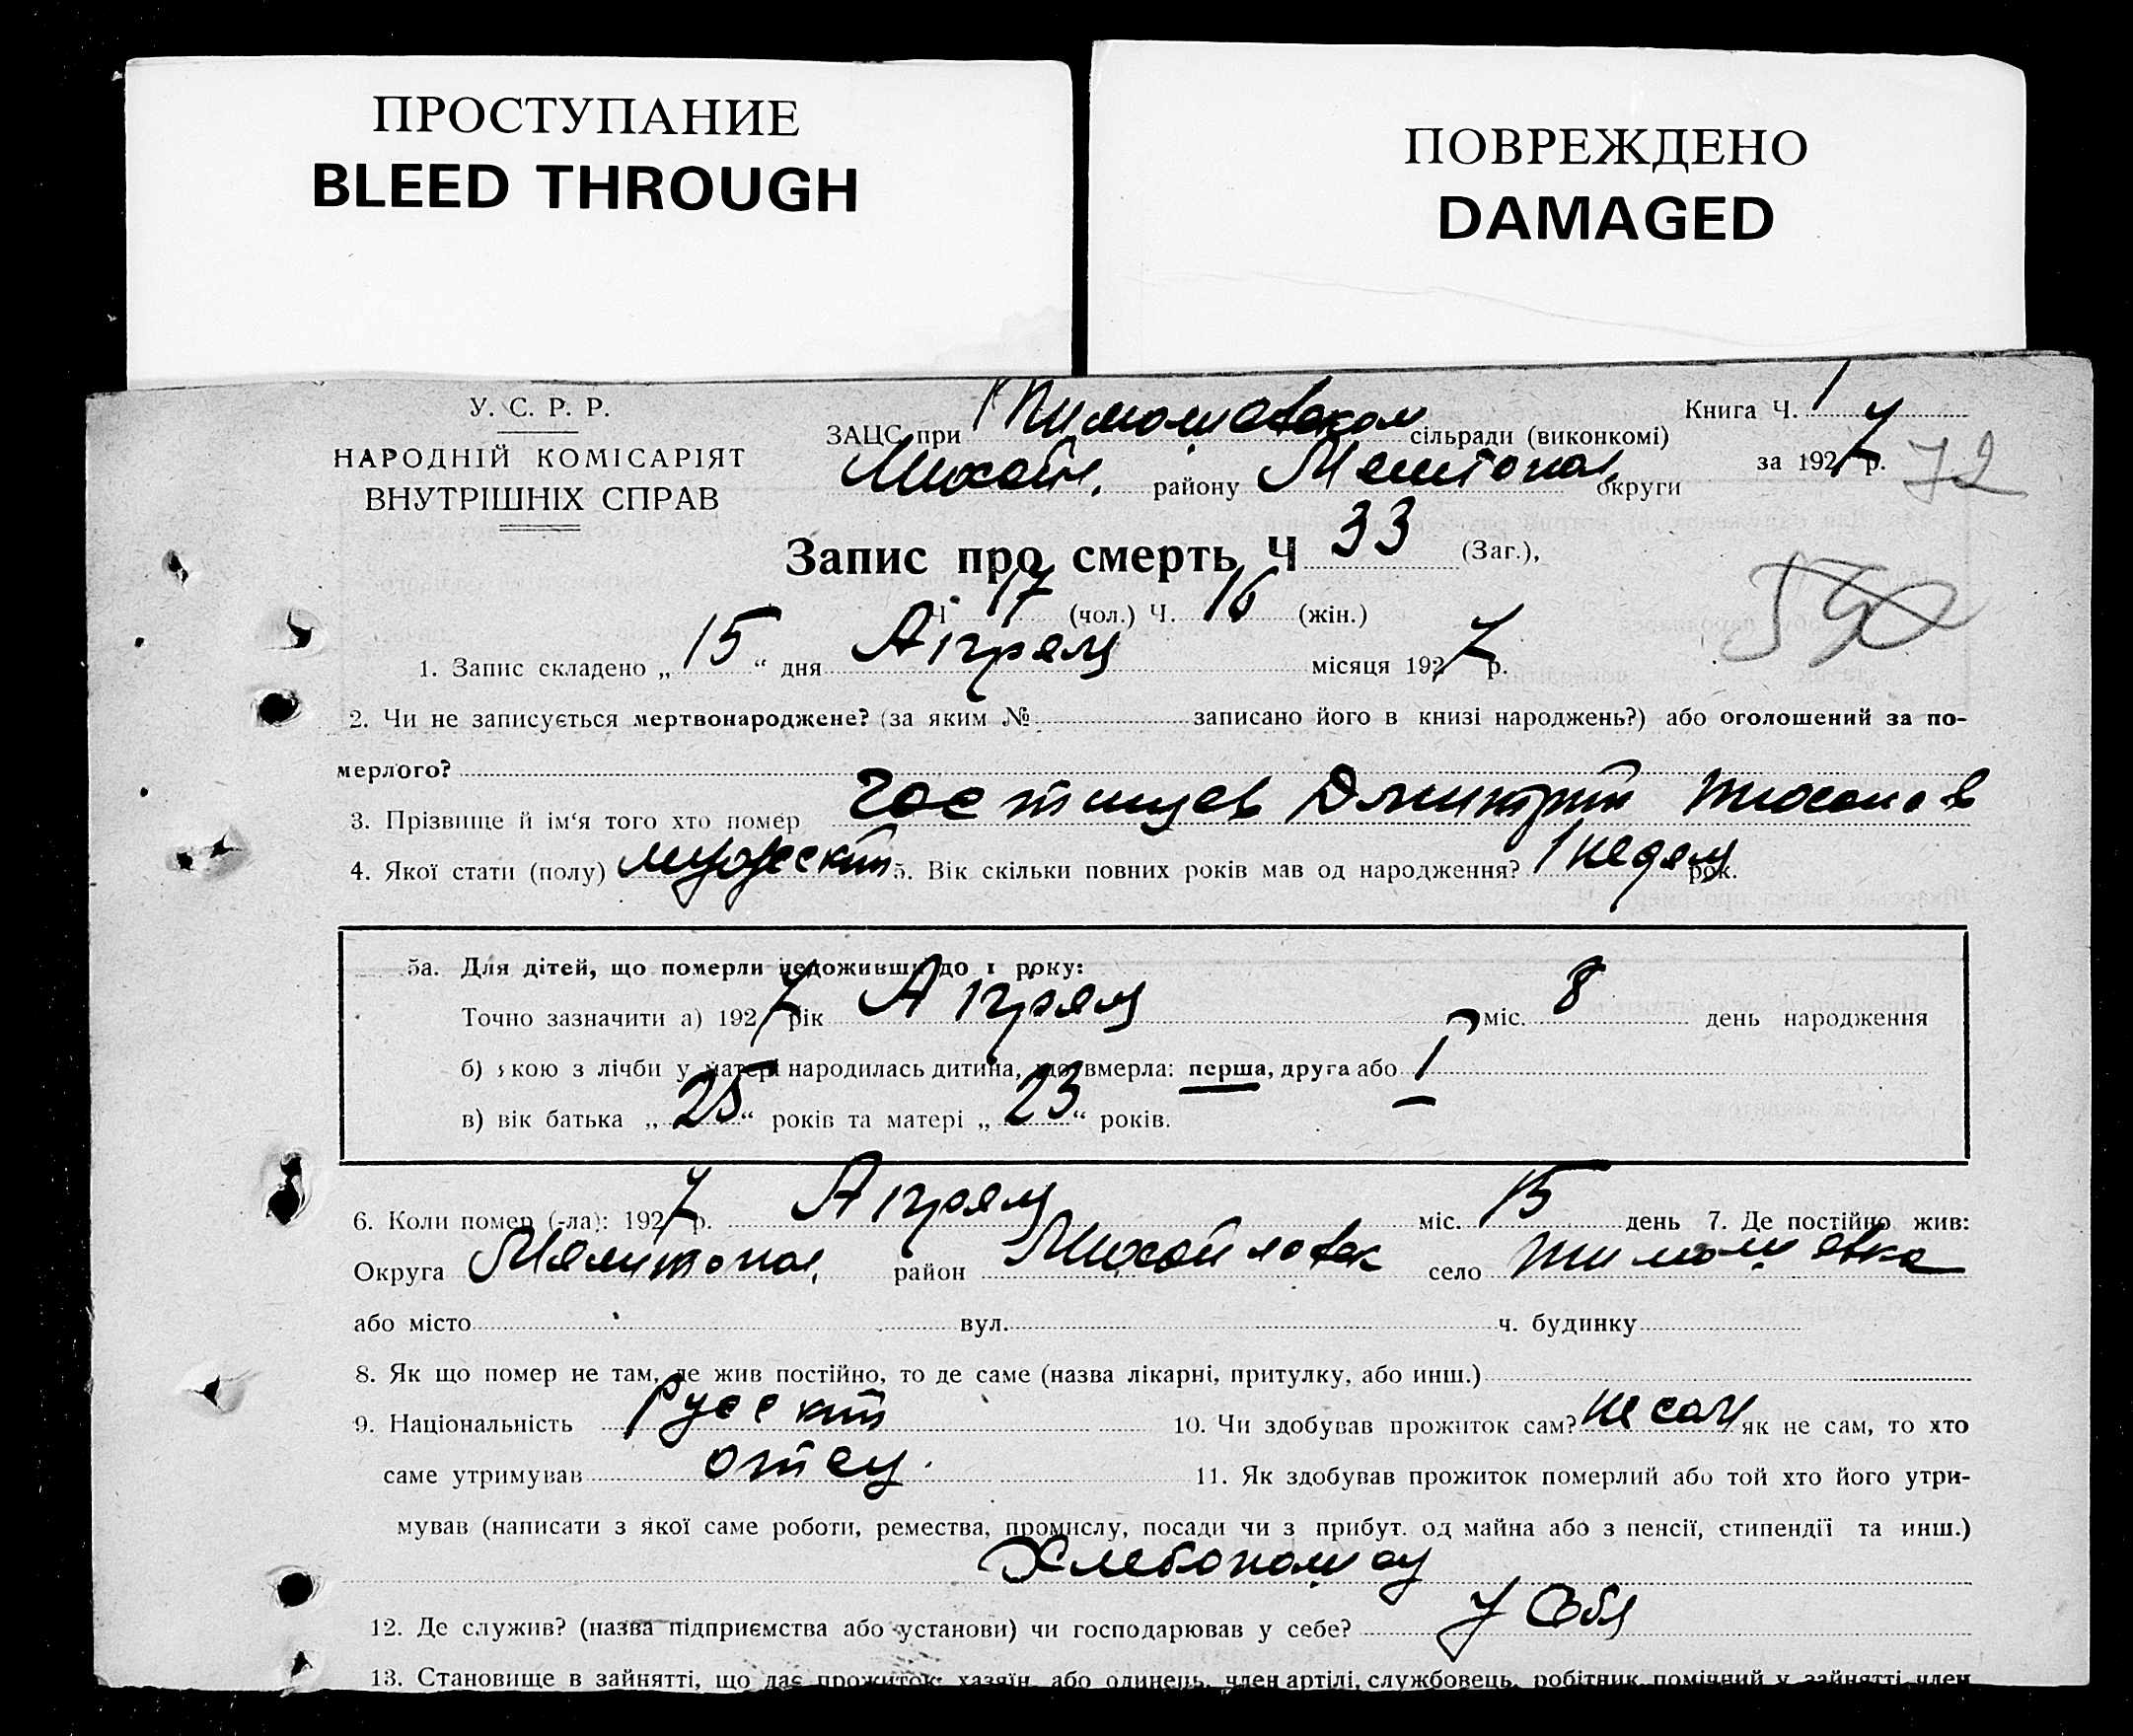 ПРОСТУПАНИЕ
BLEED THROUGH
ПОВРЕЖДЕНО
DAMAGED
У. С. Р. Р.
НАРОДНІЙ КОМІСАРІЯТ
ВНУТРІШНІХ СПРАВ
ЗАЦС при Тимошовском сільради (виконкомі)
Михайл. району Мелитопол. округи
Книга Ч. 1
за 1927 р.
72
590
Запис про смерть Ч 33 (Заг.),
Ч 17 (чол.) Ч. 16 (жін.)
1. Запис складено „ 15 “ дня Апреля місяця 1927 р.
2. Чи не записується мертвонароджене? (за яким № записано його в книзі народжень?) або оголошений за по-
мерлого?
3. Прізвище й ім'я того хто помер Гостищев Дмитрий
4. Якої стати (полу) мужеский 5. Вік скільки повних років мав од народження? 1 неделя рок.
5а. Для дітей, що померли недоживши до 1 року:
Точно зазначити а) 1927 рік Апреля міс. 8 день народження
б) якою з лічби у матері народилась дитина, що вмерла: перша, друга або 1
в) вік батька „ 25 “ років та матері „ 23 “ років.
6. Коли помер (-ла): 1927 р. Апреля міс. 15 день 7. Де постійно жив:
Округа Мелитопол. район Михайловск село Тимошевка
або місто вул. ч. будинку
8. Як що помер не там, де жив постійно, то де саме (назва лікарні, притулку, або инш.)
9. Національність Русский 10. Чи здобував прожиток сам? не сам як не сам, то хто
саме утримував отец. 11. Як здобував прожиток померлий або той хто його утри-
мував (написати з якої саме роботи, ремества, промислу, посади чи з прибут. од майна або з пенсії, стипендії та инш.)
Хлебопашец
12. Де служив? (назва підприємства або установи) чи господарював у себе? у себя
13. Становище в зайнятті, що дає прожиток: хазяїн, або одинець, член артілі, службовець, робітник, помічний у зайнятті член